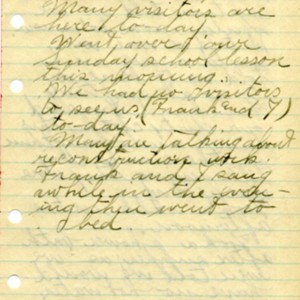 Many visitors are
here to-day
Went over our
Sunday school lesson
this morning.
We had no visitors
to see us (Frank and I)
to-day.
Many are talking about
reconstruction work.
Frank and I sang
awhile in the even-
ing then went to
bed.